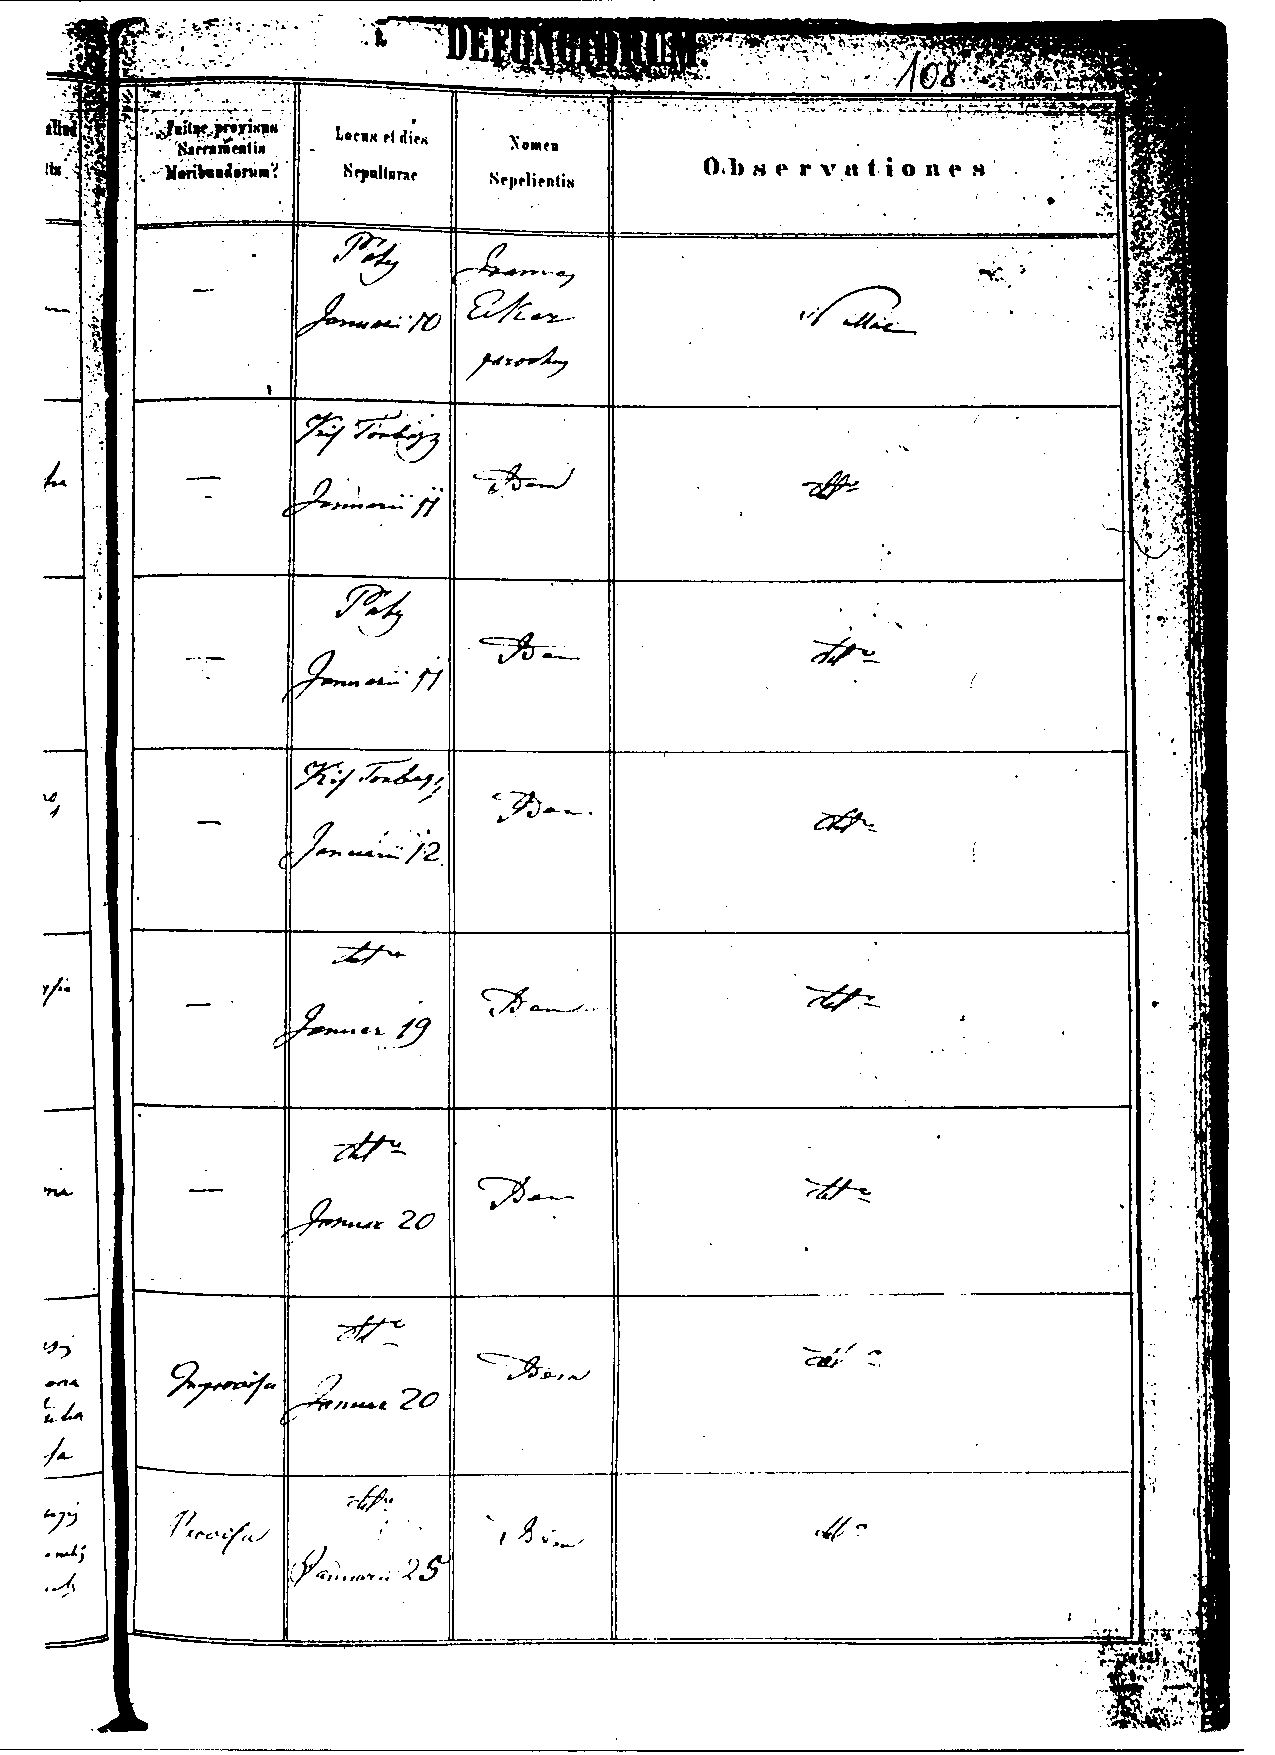 DEFUNCTORUM.
108
Fuitne provisus
Sacramentis
Moribundorum?
Locus et dies
Sepulturae
Nomen
Sepelientis
Observationes
—
Páty
Januarii 10
Joannes
Eiker
parochus
Nullae
—
Kis Torbágy
Januarii 11
Idem
detto
—
Páty
Januarii 11
Idem
detto
—
Kis Torbágy
Januarii 12
Idem
detto
—
detto
Januar 19
Idem
detto
—
detto
Januar 20
Idem
detto
Improvisa
detto
Januar 20
Idem
detto
Provisa
detto
Januarii 25
Idem
detto